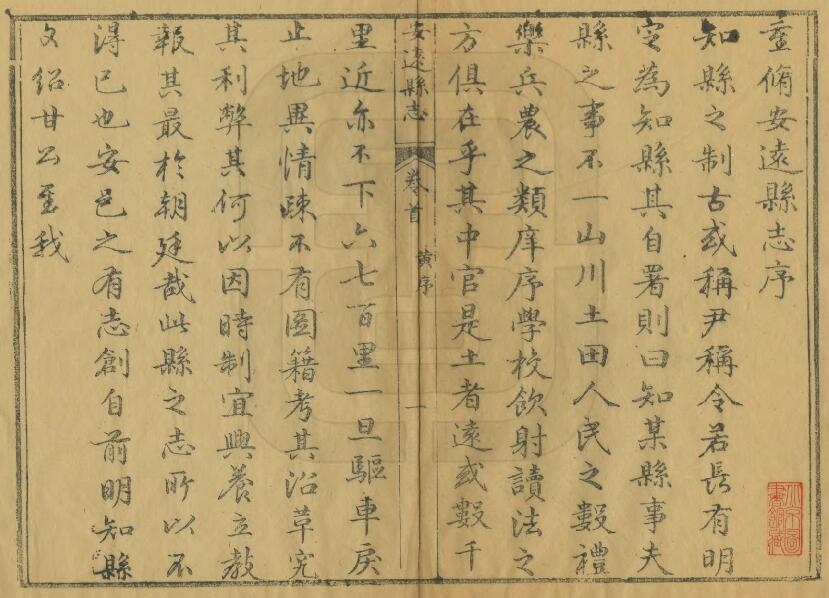 重脩安遠縣志序
知縣之制古或稱尹稱令若長有明
定為知縣其自署則曰知某縣事夫
縣之事不一山川土田人民之數禮
樂兵農之類庠序學校飲射讀法之
方俱在乎其中官是土者遠或數千
安遠縣志 卷首 黃序 一
里近亦不下六七百里一旦驅車戾
止地異情疎不有圖籍考其沿革究
其利弊其何以因時制宜興養立教
報其最於朝廷哉此縣之志所以不
得已也安邑之有志創自前明知縣
文紹甘公至我